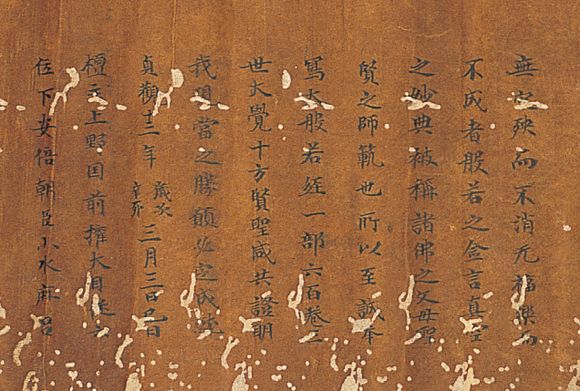 無灾殃而不消无福樂而
不成者般若之金言真空
之妙典被稱諸佛之父母聖
賢之師範也所以至誠奉
寫大般若經一部六百卷三
世大覺十方賢聖咸共證明
我現當之勝願必定成
貞觀十三年歲次辛卯三月三日
檀主上野国前權大目從六
位下安倍朝臣小水麻呂